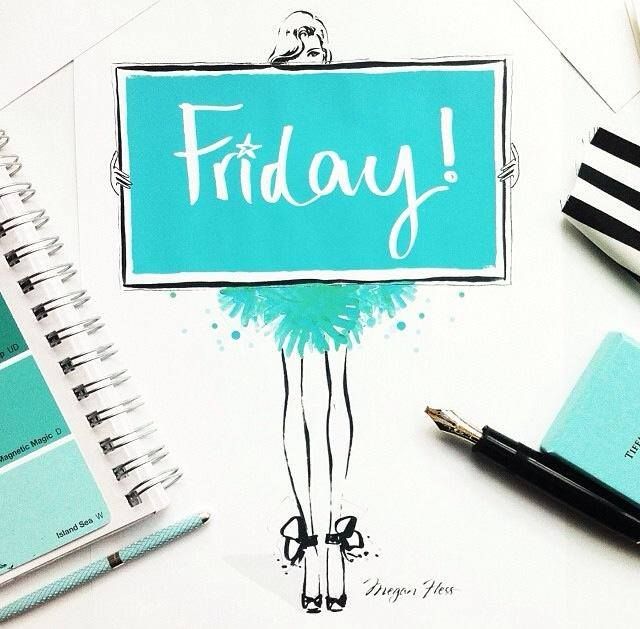 Friday!
UD
Magnetic Magic D
Island Sea W
Megan Hess